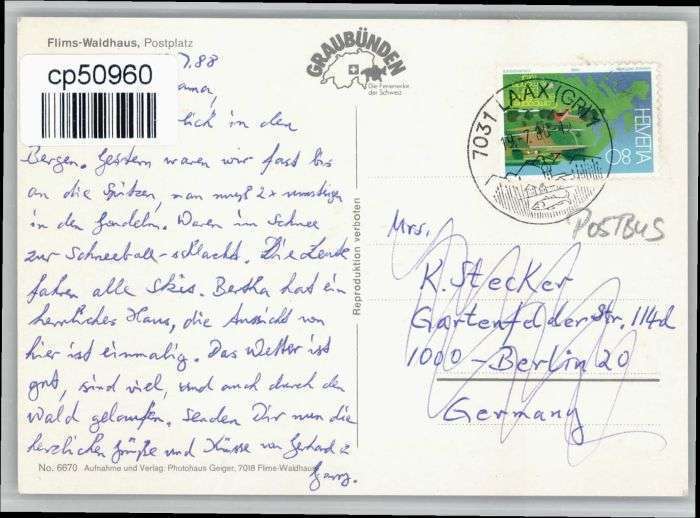 Flims-Waldhaus, Postplatz
GRAUBÜNDEN
Die Ferienecke
der Schweiz
7.88
cp50960
in den
Bergen. Gestern waren wir fast bis
an die Spitzen, man muß 2x umsteigen
in den Gondeln. Waren im Schnee
zur Schneeball-schlacht. Die Leute
fahren alle Skis. Bertha hat ein
herrliches Haus, die Aussicht von
hier ist einmalig. Das Wetter ist
gut, sind viel, und auch durch den
Wald gelaufen. Senden Dir nun die
herzlichen Grüße und Küsse von Gerhard u
No. 6670 Aufnahme und Verlag: Photohaus Geiger, 7018 Flims-Waldhaus
Reproduktion verboten
7031 LAAX (GR) 1
HELVETIA
80
POSTBUS
Mrs.
K. Stecker
Gartenfelder Str. 114d
1000-Berlin 20
Germany